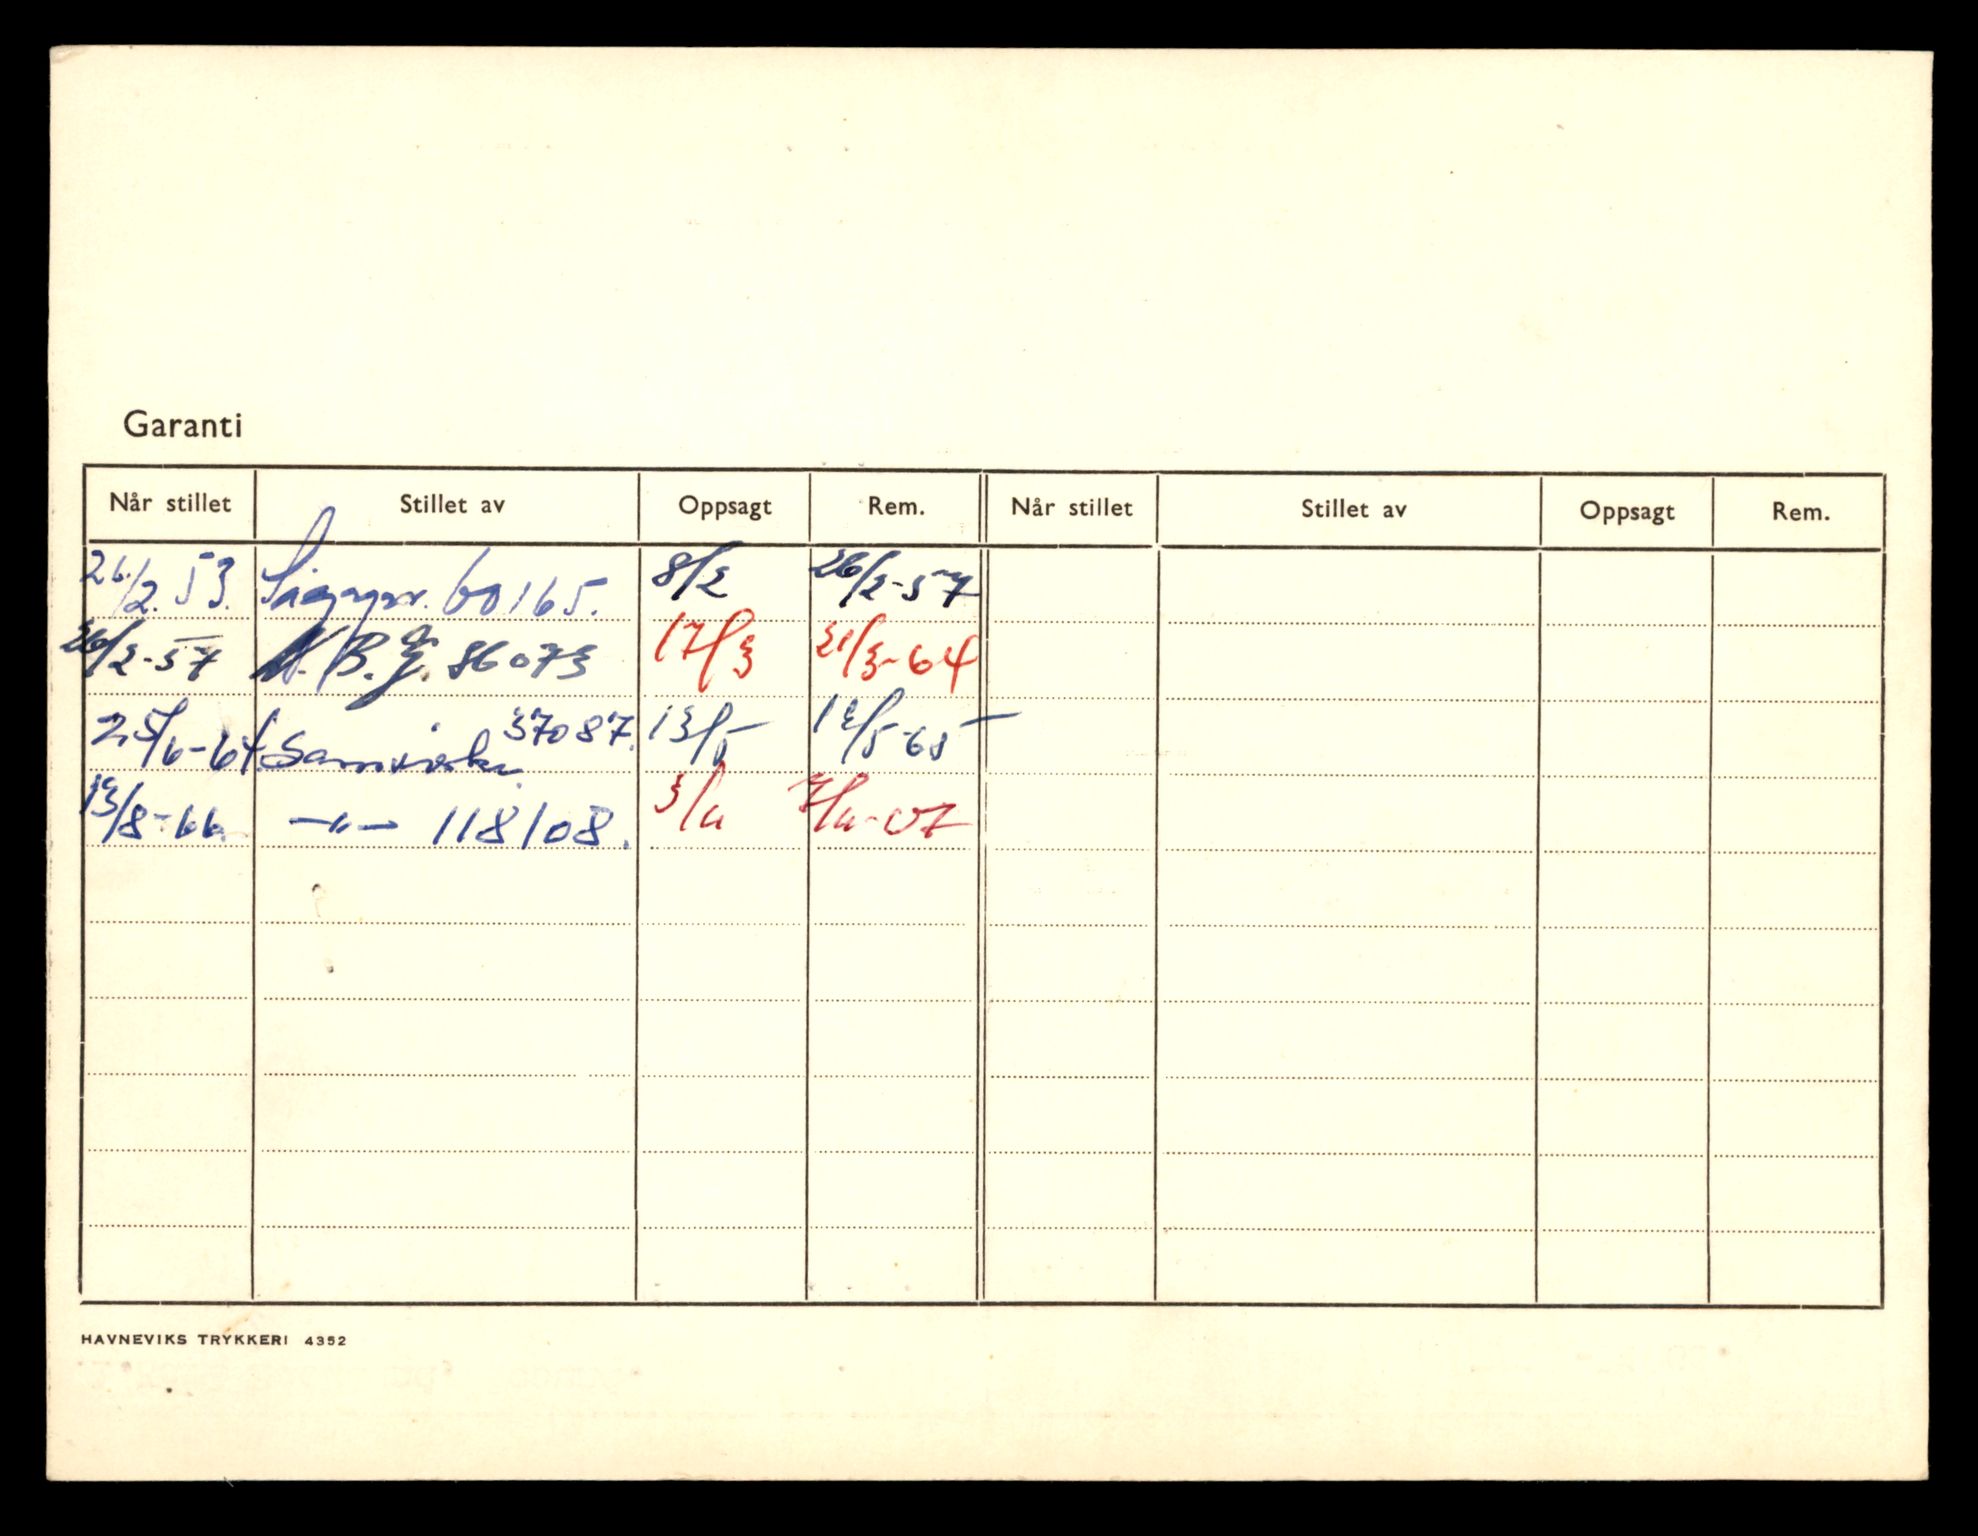 Garanti
Når stillet Stillet av Oppsagt Rem. Når stillet Stillet av Oppsagt Rem.
26/2. 53. 60165. 8/2 26/2-57
26/2-57 N.B.G. 86073 17/3 31/3-64
25/6-64. Samvirke 37087. 13/5 12/5-65
13/8-66. -"- 118108. 3/4 7/4-67
HAVNEVIKS TRYKKERI 4352